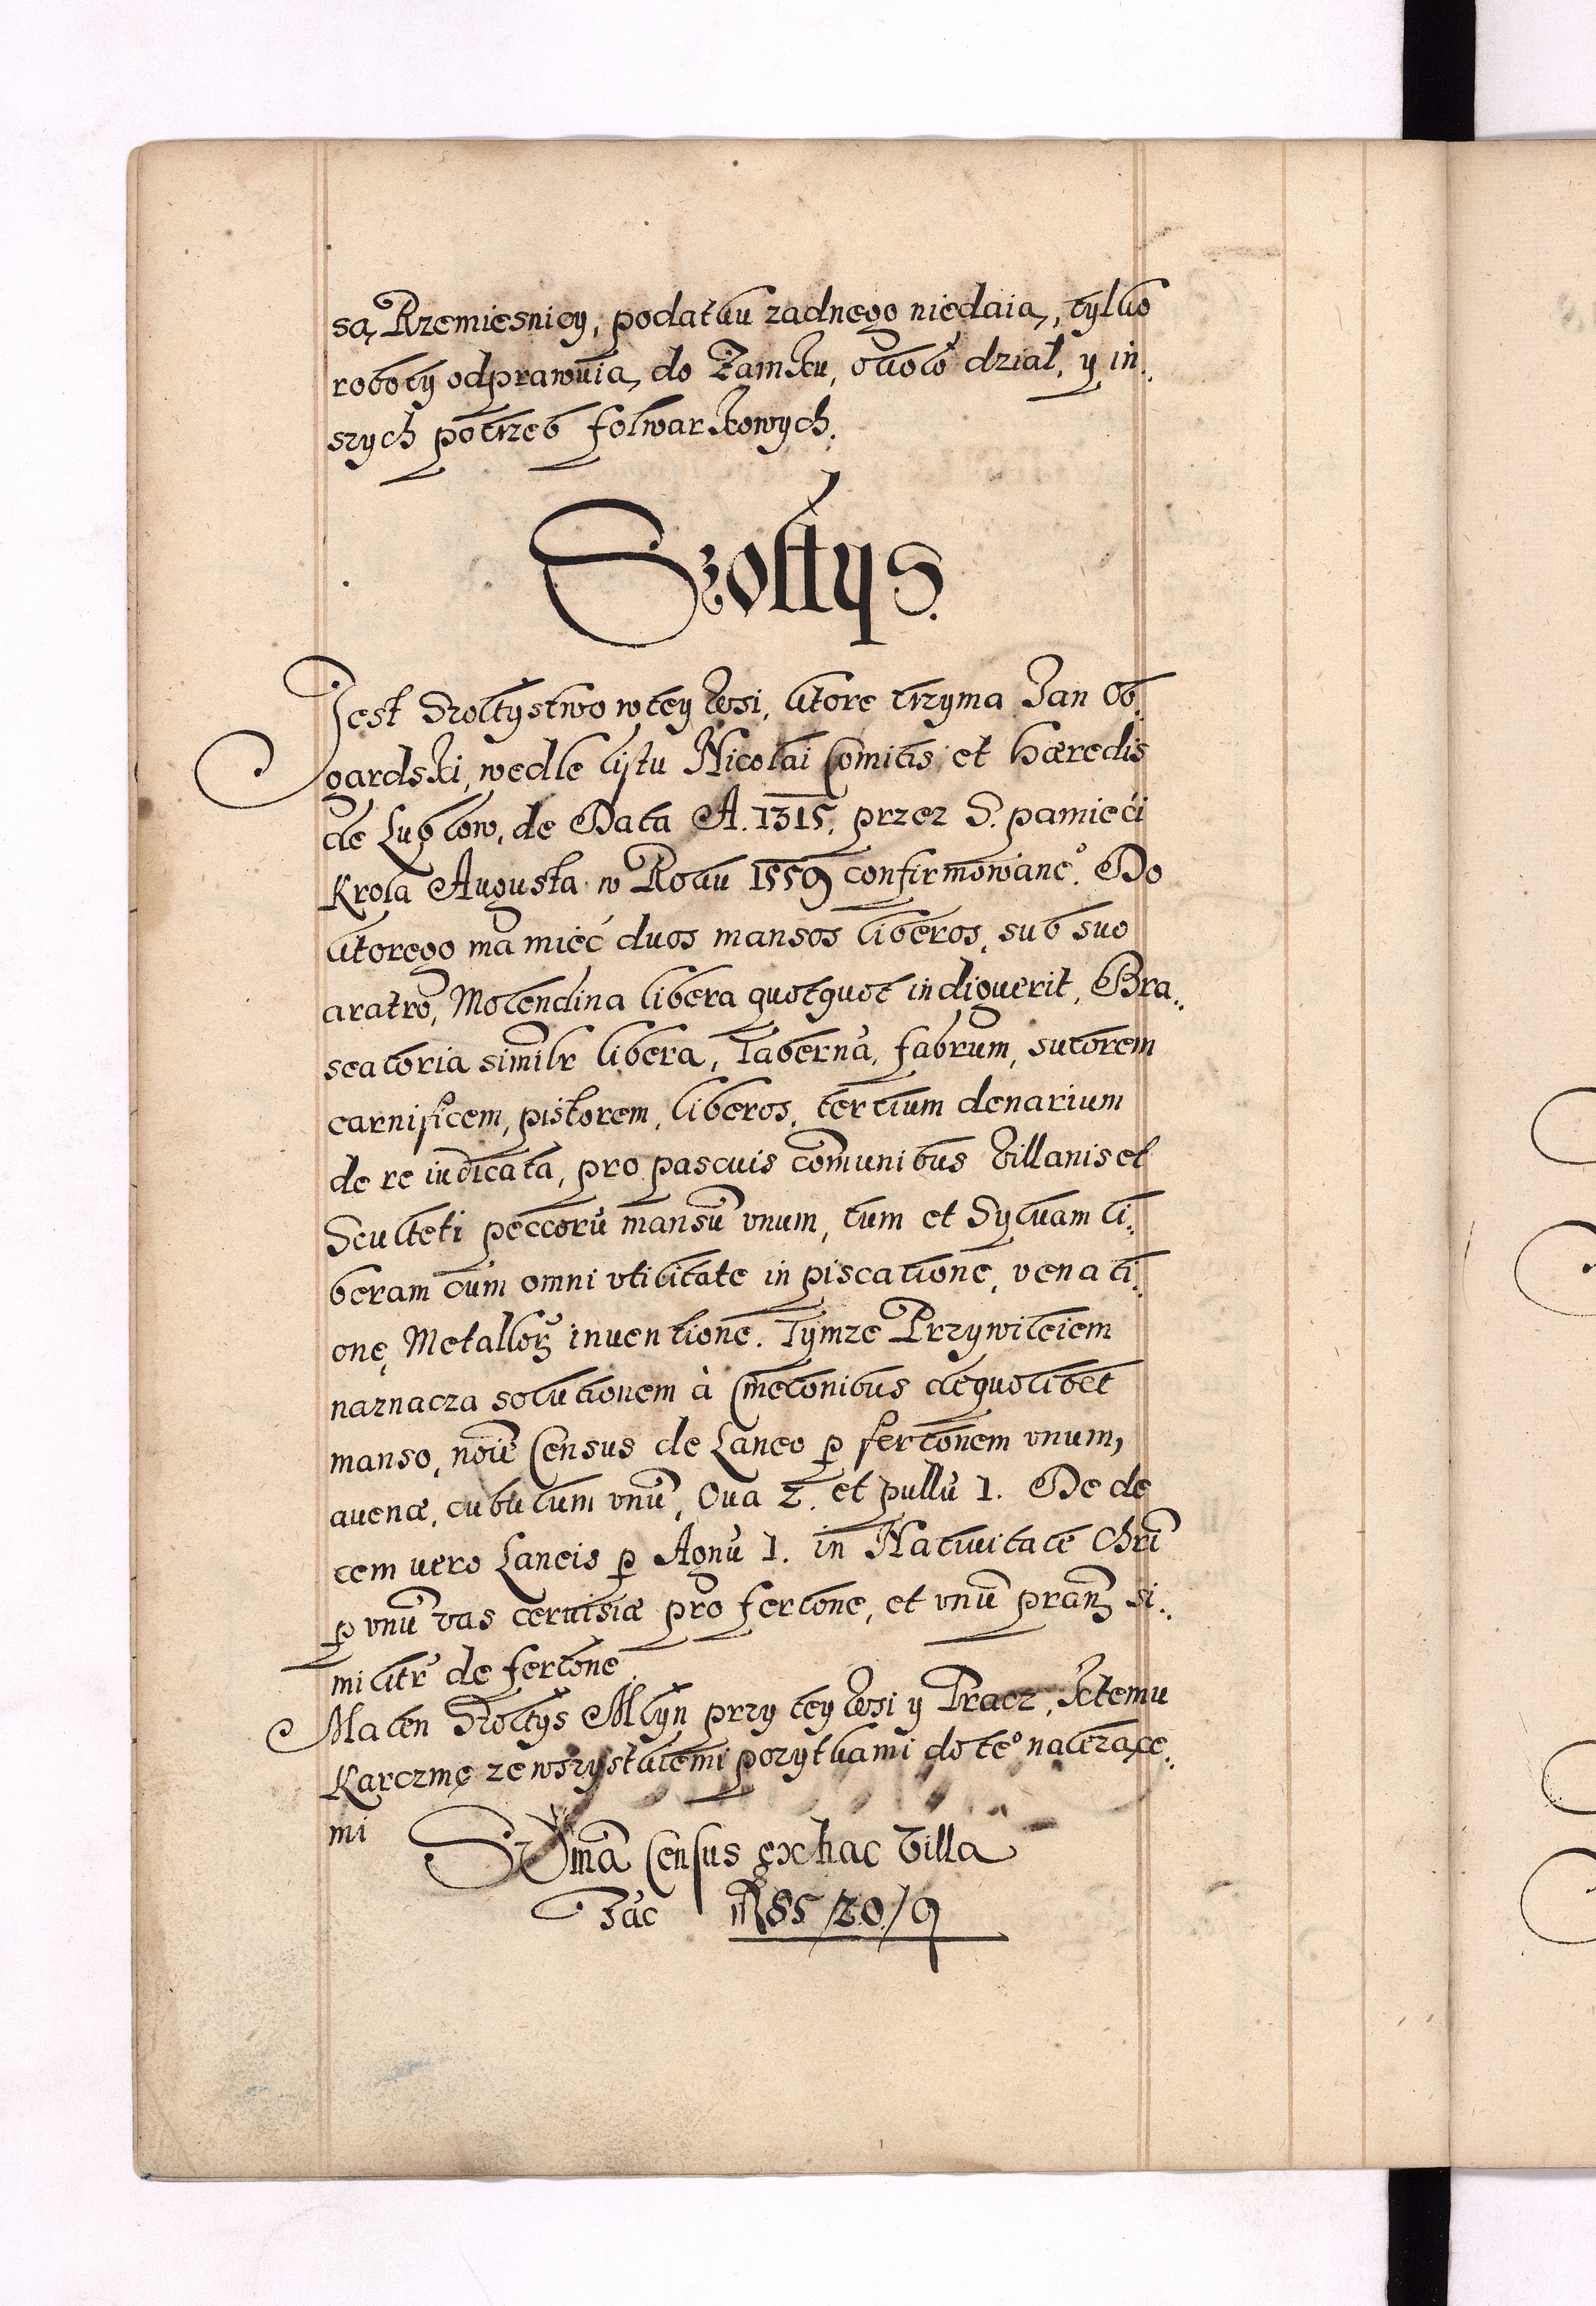 są Rzemiesnicy, podatku zadnego niedaią, tylko
roboty odprawuią do Zamku, około dział, y in..
szych potrzeb folwarkowych.
Szołtys.
Jest Szołtystwo w tey Wsi, ktore trzyma Jan Ob..
gardski, wedle listu Nicolai Comitis et Hæredis
de Lublow, de Data A. 1315. przez S. pamięci
Krola Augusta w Roku 1559 confirmowane°. Do
ktorego ma mieć duos mansos liberos, sub suo
aratro, Molendina libera quotquot indiguerit, Bra..
seatoria similr libera, Taberna, fabrum, sutorem
carnificem, pistorem, liberos, tertium denarium
de re iudicata, pro pascuis comunibus Villanis et
Sculteti peccorũ mansũ vnum, tum et Syluam li..
beram cum omni vtilitate in piscatione, venati..
one, Metallorꝝ inuentione. Tymze Przywileiem
naznacza solutionem à Cmetonibus de quolibet
manso, noīe Census de Laneo ꝑ fertonem vnum,
auenæ, cubulum vnũ, Oua 2. et pullũ 1. De de
cem vero Laneis ꝑ Agnũ 1. in Natiuitate Chrī
ꝑ vnũ vas ceruisiæ pro fertone, et vnũ pranꝫ si..
militr de fertone.
Ma ten Szołtys Młyn przy tey Wsi y Tracz, Ktemu
Karczmę ze wszystkiemi pozytkami do te° nalezące..
mi
Sum̃a Census ex hac Villa
Fac 85/20/9